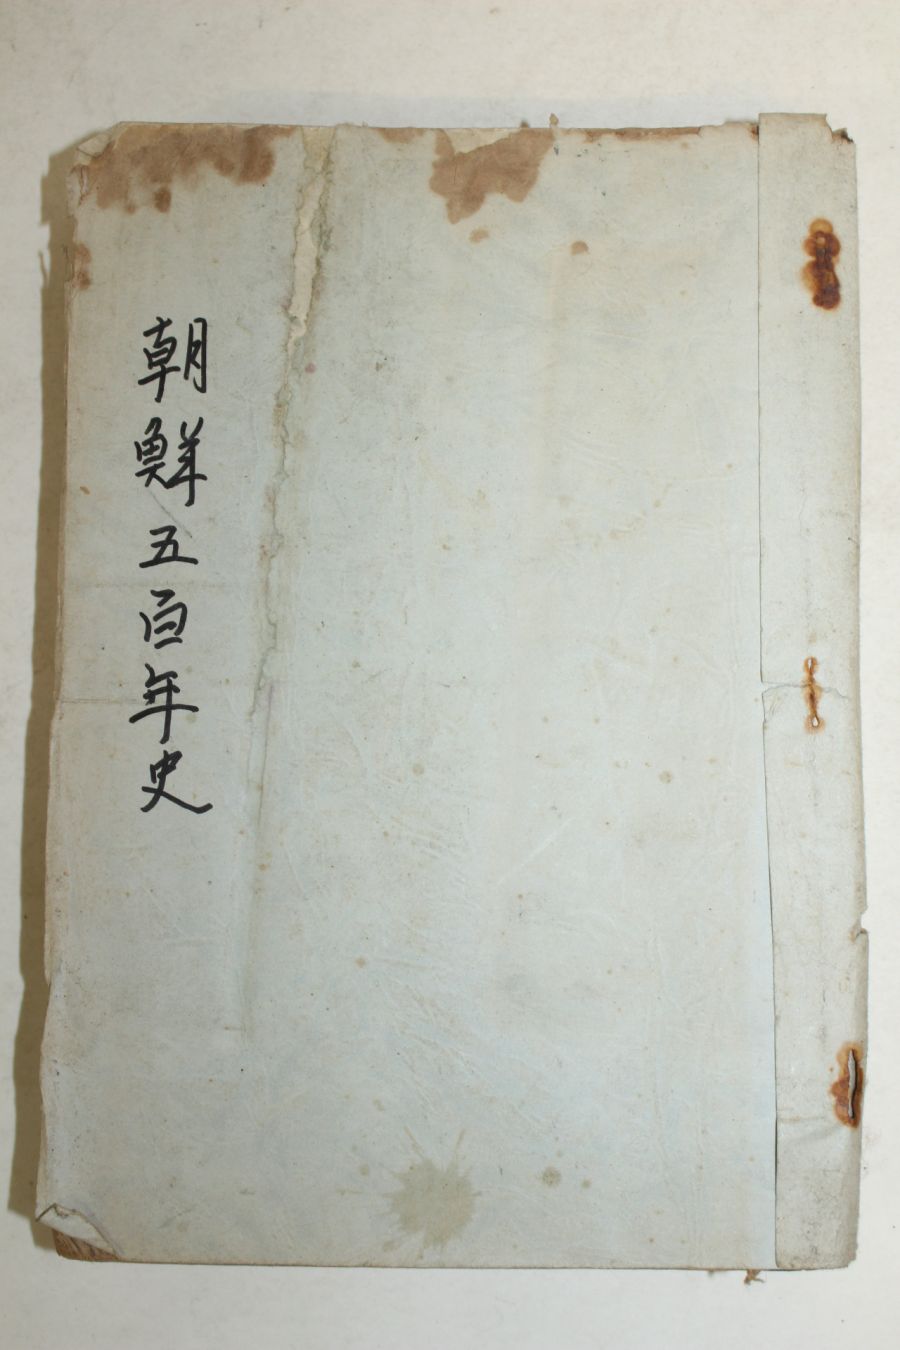 朝鮮五百年史